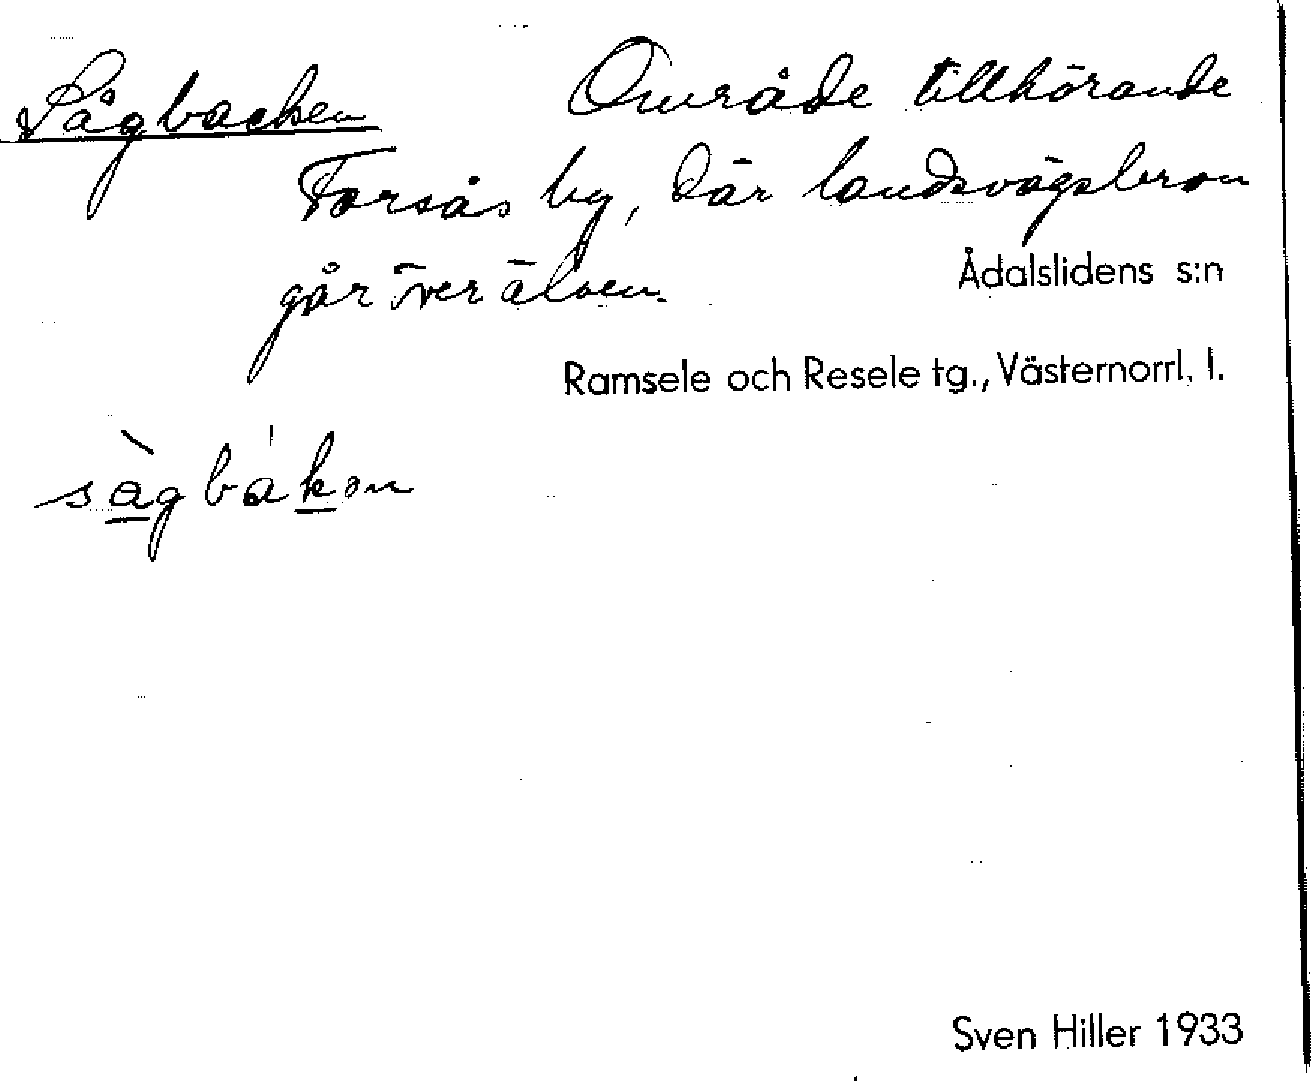 Sågbacken Område tillhörande
Forsås by, där landsvägsbron
går över älven.
Ådalslidens s:n
Ramsele och Resele tg., Västernorrl. l.
sàgbákon
Sven Hiller 1933